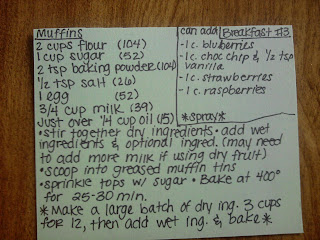 Muffins
2 cups flour (104)
1 cup sugar (52)
2 tsp baking powder (104)
1/2 tsp salt (26)
1 egg (52)
3/4 cup milk (39)
Just over 1/4 cup oil (15)
can add Breakfast #3
- 1 c. bluberries
- 1 c. choc chip & 1/2 tsp
vanilla
- 1 c. strawberries
- 1 c. raspberries
*spray*
• stir together dry ingredients • add wet
ingredients & optional ingred. (may need
to add more milk if using dry fruit)
• scoop into greased muffin tins
• sprinkle tops w/ sugar • Bake at 400°
for 25-30 min.
* Make a large batch of dry ing. 3 cups
for 12, then add wet ing. & bake *